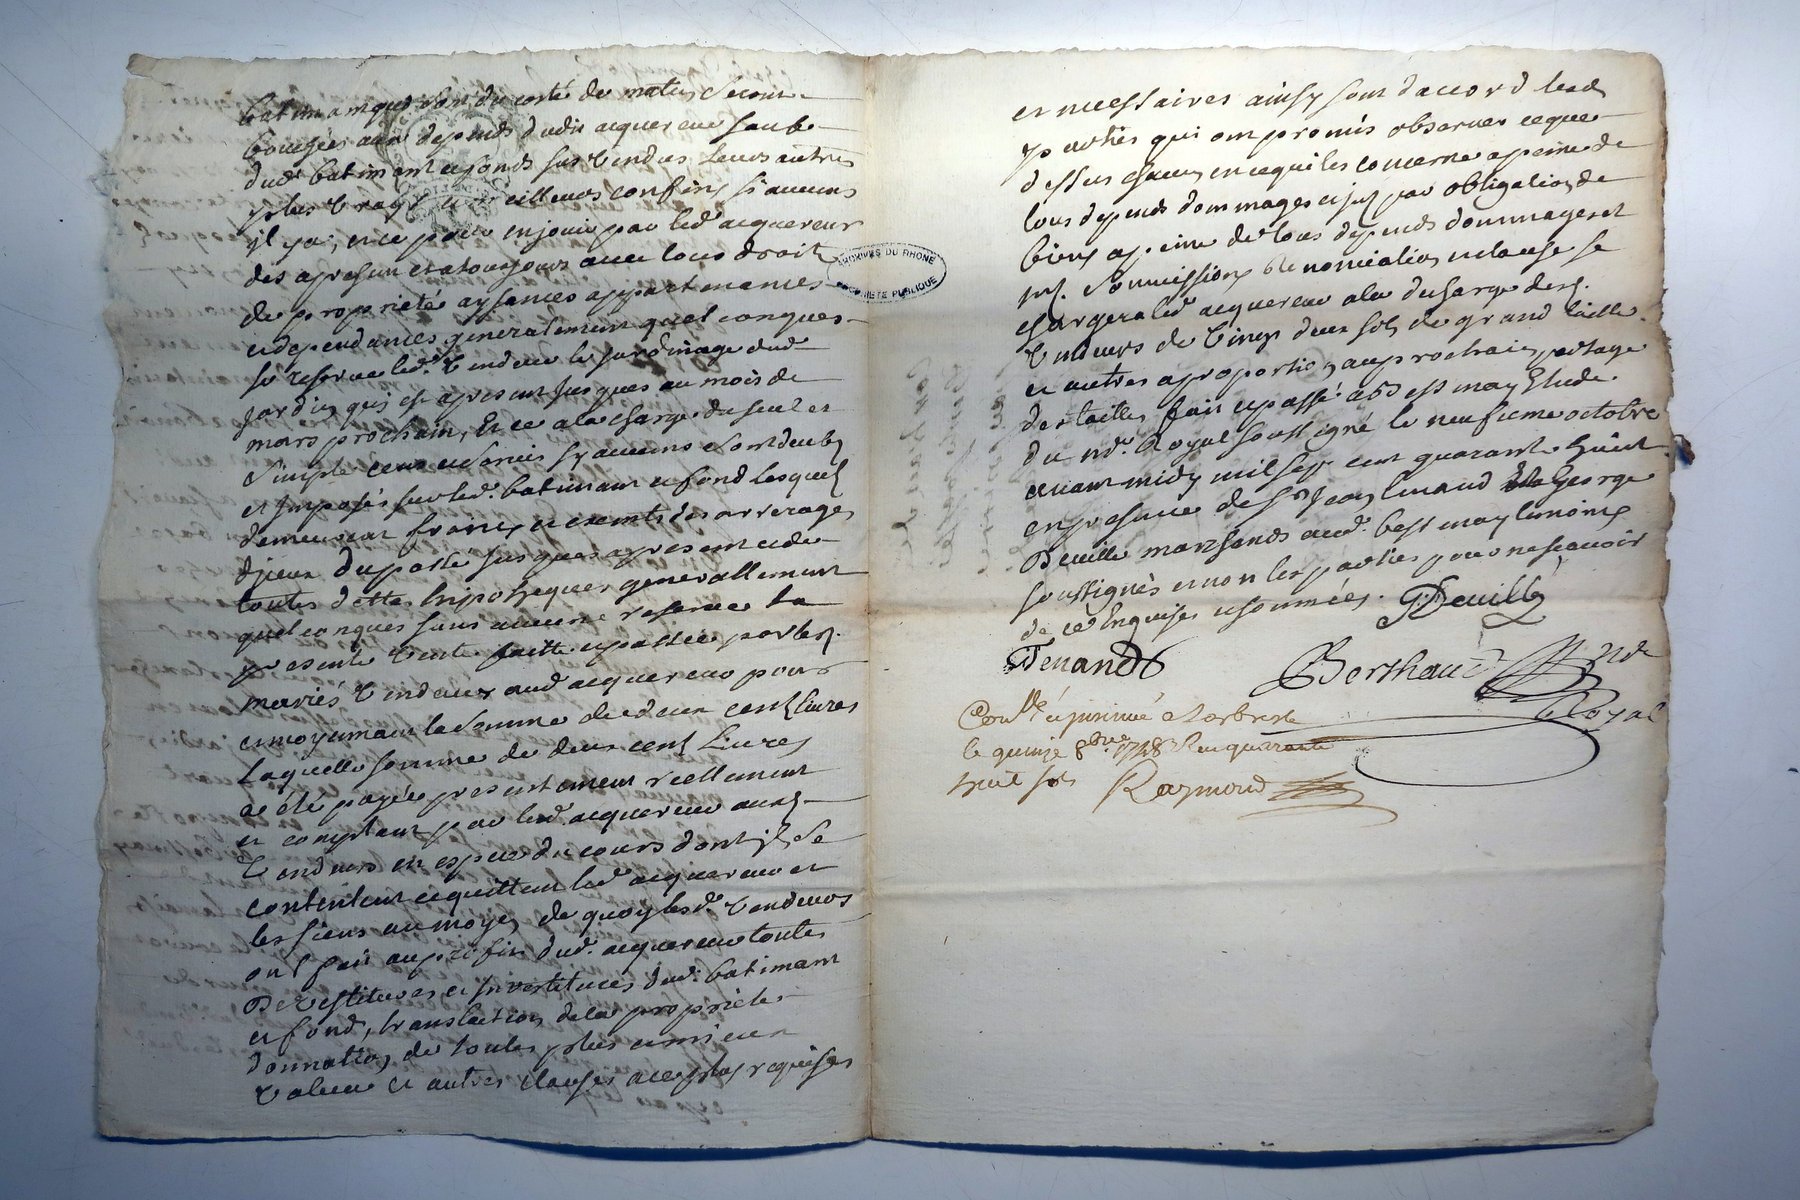 batimant qui sont du costé de matin seront
bouchées aux depends dudit acquereur sauf
dud. batiment et fonds sus vendus leurs autres
plus vrays et meilleurs confins si aucuns
il y a; et ce pour en jouir par led. acquereur
des apresent et a toujours avec tous droits
de proprieté aysances appartenances
et dependances generalement quelconques
se reserve led. vendeur le jardinage dud.
jardin qui est apresent jusques au mois de
mars prochain, Et ce a la charge du seul et
simple cens et servis sy aucuns sont deubs
et imposés sur led. batimant et fond lesquels
demeurent francs et exempts des arrerages
d'jceux du passé jusques apresent et de
toutes dettes hipotheques generallement
quelconques sans aucune reserve La
presente vente faitte et passée par les.
mariés vendeurs aud. acquereur pour
et moyennant la somme de deux cents livres
Laquelle somme de deux cents Livres
a été payée presentement reellement
et comptant par led. acquereur auxd.
vendeurs en espece du cours dont ils se
contentent et quittent led. acquereur et
les siens au moyen de quoy lesd. vendeurs
ont fait au profit dud. acquereur toutes
Devestitures et investitures dud. batimant
et fond, translation de la proprieté
donnation de toutes plus et mieux
valeur et autres clauses a ce plus requises
ARCHIVES DU RHONE
PROPRIÉTÉ PUBLIQUE
et necessaires ainsy sont d'accord lesd.
parties qui ont promis observer ce que
dessus chacun en ce qui les concerne a peine de
tous depends dommages et jnt. par obligation de
biens a peine de tous depends dommages et
jnt. soumissions renonciation et clause se
chargera led. acquereur a la decharge desd.
vendeurs de vingt deux sols de grand taille
et autres a proportion au prochain partage
des tailles, fait et passé a Bessenay Etude
du nd. Royal soussigné le neufieme octobre
avant midy mil sept cent quarante huit
en presence de sr. Jean Lenand George
Deville marchands aud. Bessenay temoins
soussignés et non les parties pour ne scavoir
de ce Enquises et sommées. GDeville
JTenand
Berthaud nd.
Royal
Conllé et jnsinué a Larbresle
le quinze 8bre 1748 Reçu quarante
huit sols Raymond